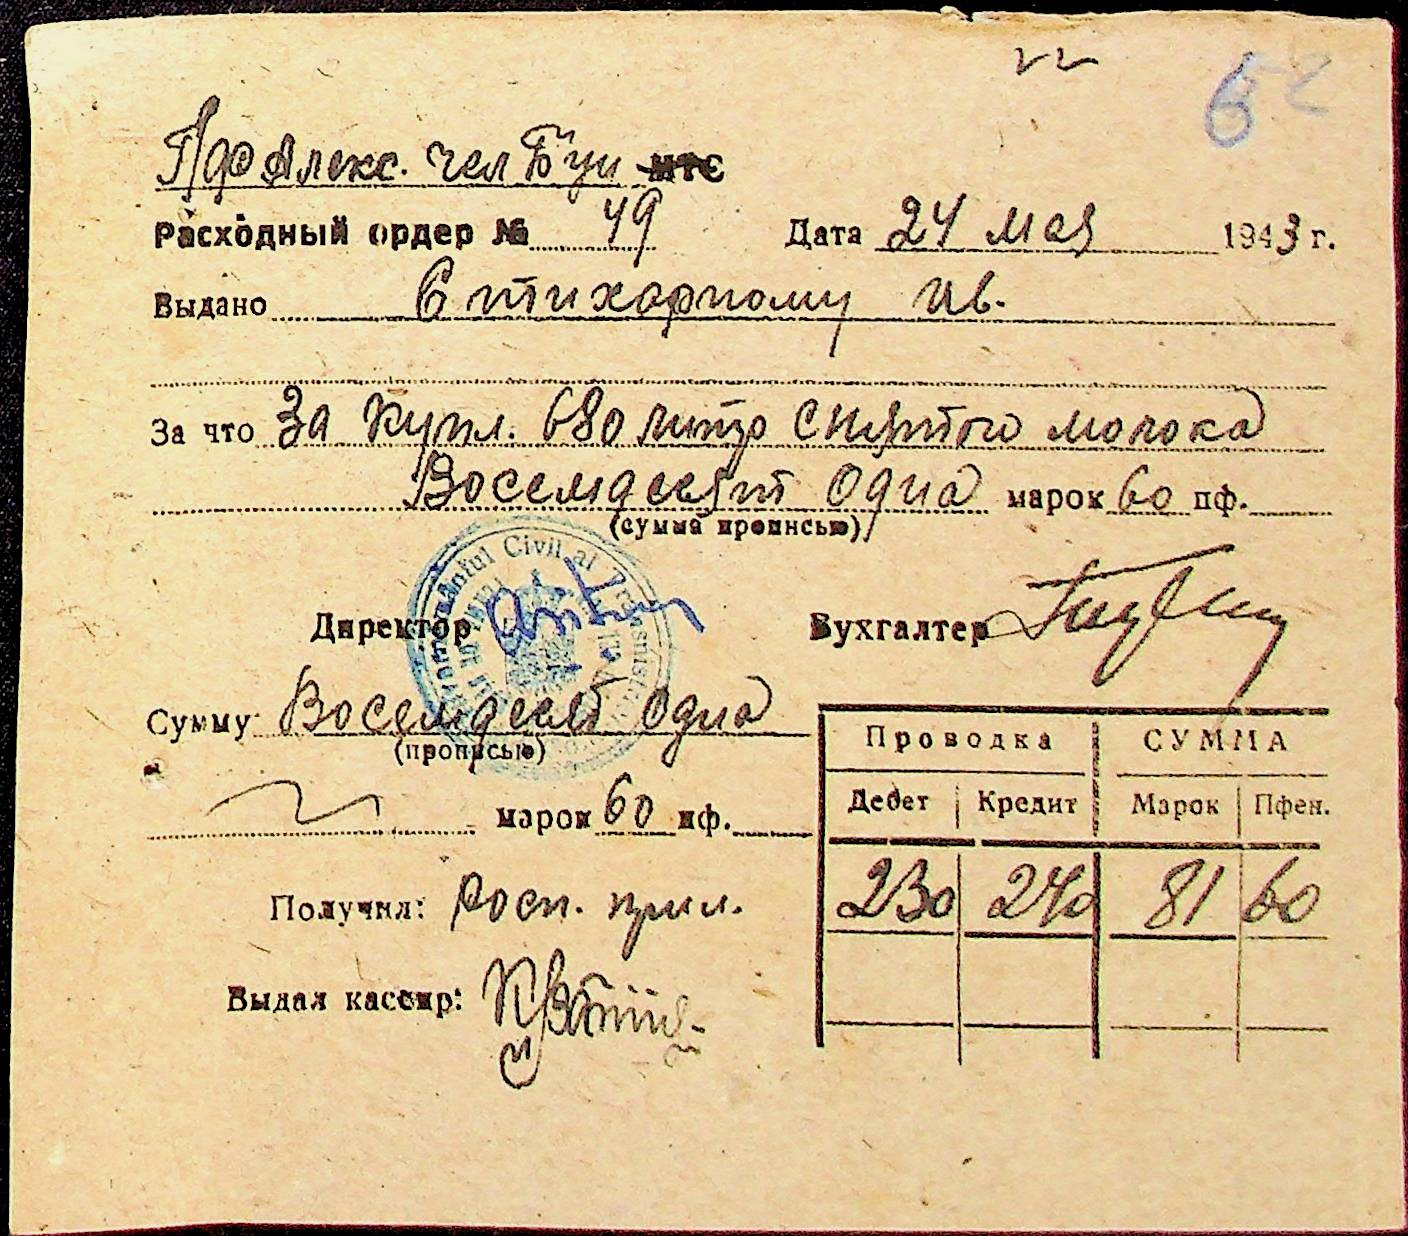 62
Алекс. чел Буи мтс
Расходный ордер № 49 Дата 24 мая 1943 г.
Выдано Стихарному Ив.
За что За купл. 680 литр снятого молока
Восемдесят одна марок 60 пф.
(сумма прописью)
Guvernământul Civil al Transnistriei
Директор Бухгалтер
Сумму Восемдесят одна
(прописью)
марок 60 пф.
Проводка СУММА
Дебет Кредит Марок Пфен.
230 240 81 60
Получил: Росп. прил.
Выдал кассир: